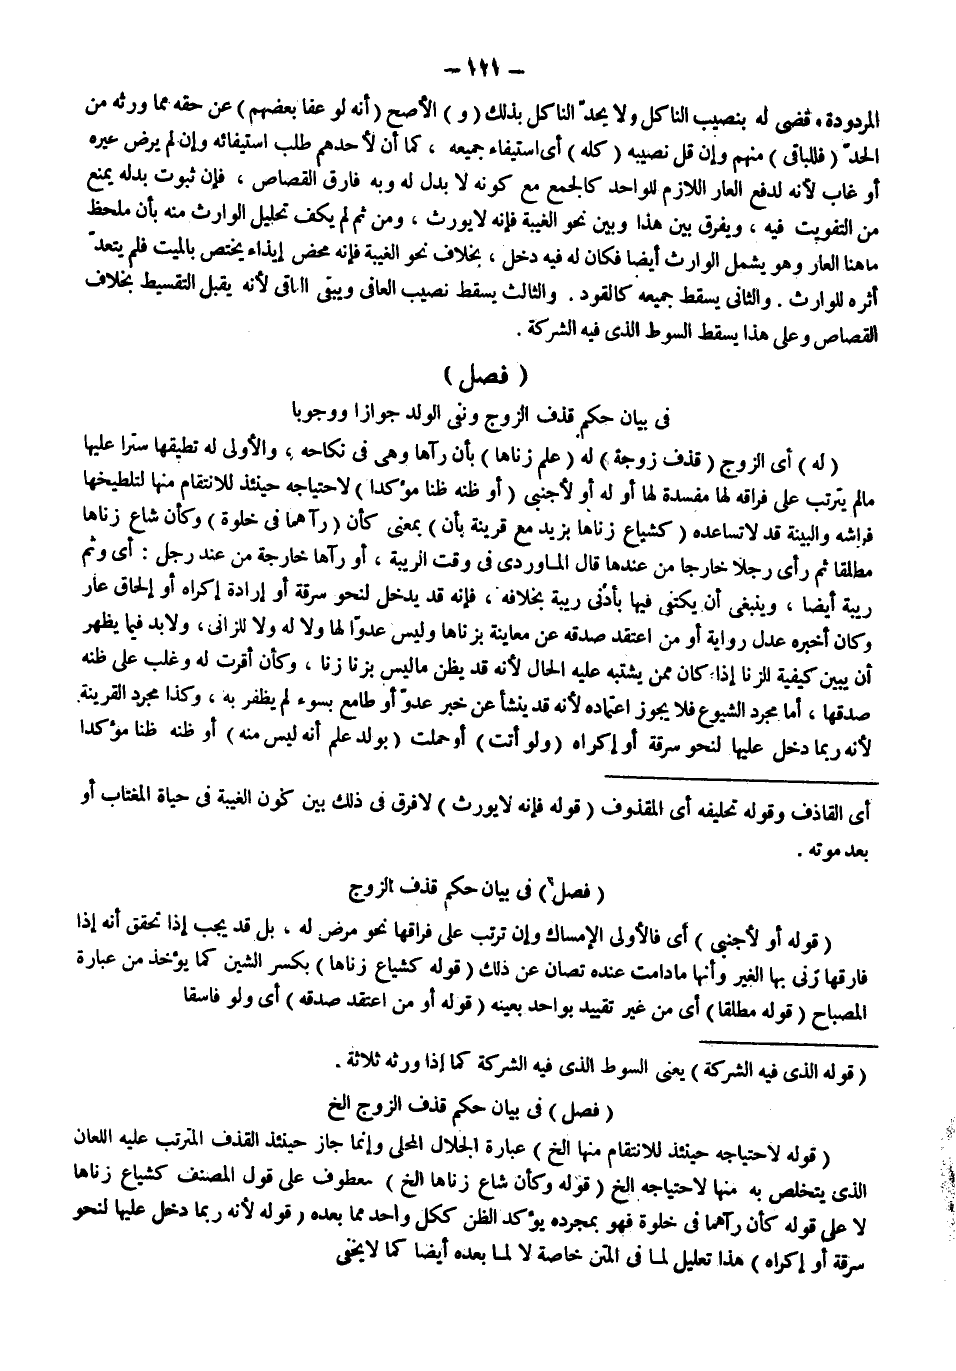 – ١٢١ –
المردودة، قضى له بنصيب الناكل ولا يحدّ الناكل بذلك ( و ) الأصح ( أنه لو عفا بعضهم ) عن حقه مما ورثه من
الحدّ ( فللباقى ) منهم وإن قل نصيبه ( كله ) أى استيفاء جميعه ، كما أن لأحدهم طلب استيفائه وإن لم يرض غيره
أو غاب لأنه لدفع العار اللازم للواحد كالجمع مع كونه لا بدل له وبه فارق القصاص ، فإن ثبوت بدله يمنع
من التفويت فيه ، ويفرق بين هذا وبين نحو الغيبة فإنه لايورث ، ومن ثم لم يكف تحليل الوارث منه بأن ملحظ
ماهنا العار وهو يشمل الوارث أيضا فكان له فيه دخل ، بخلاف نحو الغيبة فإنه محض إيذاء يختص بالميت فلم يتعدّ
أثره للوارث . والثانى يسقط جميعه كالقود . والثالث يسقط نصيب العافى ويبقى الباقى لأنه يقبل التقسيط بخلاف
القصاص وعلى هذا يسقط السوط الذى فيه الشركة .
( فصل )
فى بيان حكم قذف الزوج ونفى الولد جوازا ووجوبا
( له ) أى الزوج ( قذف زوجة ) له ( علم زناها ) بأن رآها وهى فى نكاحه ، والأولى له تطيقها سترا عليها
مالم يترتب على فراقه لها مفسدة لها أو له أو لأجنبى ( أو ظنه ظنا مؤكدا ) لاحتياجه حينئذ للانتقام منها لتلطيخها
فراشه والبينة قد لاتساعده ( كشياع زناها بزيد مع قرينة بأن ) بمعنى كأن ( رآهما فى خلوة ) وكأن شاع زناها
مطلقا ثم رأى رجلا خارجا من عندها قال الماوردى فى وقت الريبة ، أو رآها خارجة من عند رجل : أى وثم
ريبة أيضا ، وينبغى أن يكتفى فيها بأدنى ريبة بخلافه ، فإنه قد يدخل لنحو سرقة أو إرادة إكراه أو إلحاق عار
وكان أخبره عدل رواية أو من اعتقد صدقه عن معاينة بزناها وليس عدوّا لها ولا له ولا للزانى، ولابد فيما يظهر
أن يبين كيفية للزنا إذا كان ممن يشتبه عليه الحال لأنه قد يظن ماليس بزنا زنا ، وكأن أقرت له وغلب على ظنه
صدقها ، أما مجرد الشيوع فلا يجوز اعتماده لأنه قد ينشأ عن خبر عدوّ أو طامع بسوء لم يظفر به ، وكذا مجرد القرينة
لأنه ربما دخل عليها لنحو سرقة أو إكراه ( ولو أتت ) أو حملت ( بولد علم أنه ليس منه ) أو ظنه ظنا مؤكدا
أى القاذف وقوله تحليفه أى المقذوف ( قوله فإنه لايورث ) لافرق فى ذلك بين كون الغيبة فى حياة المغتاب أو
بعد موته .
( فصل ) فى بيان حكم قذف الزوج
( قوله أو لأجنبى ) أى فالأولى الإمساك وإن ترتب على فراقها نحو مرض له ، بل قد يجب إذا تحقق أنه إذا
فارقها زنى بها الغير وأنها مادامت عنده تصان عن ذلك ( قوله كشياع زناها ) بكسر الشين كما يؤخذ من عبارة
المصباح ( قوله مطلقا ) أى من غير تقييد بواحد بعينه ( قوله أو من اعتقد صدقه ) أى ولو فاسقا
( قوله الذى فيه الشركة ) يعنى السوط الذى فيه الشركة كما إذا ورثه ثلاثة .
( فصل ) فى بيان حكم قذف الزوج الخ
( قوله لاحتياجه حينئذ للانتقام منها الخ ) عبارة الجلال المحلى وإنما جاز حينئذ القذف المترتب عليه اللعان
الذى يتخلص به منها لاحتياجه الخ ( قوله وكأن شاع زناها الخ ) معطوف على قول المصنف كشياع زناها
لا على قوله كأن رآهما فى خلوة فهو بمجرده يؤكد الظن ككل واحد مما بعده ( قوله لأنه ربما دخل عليها لنحو
سرقة أو إكراه ) هذا تعليل لما فى المتن خاصة لا لما بعده أيضا كما لايخفى